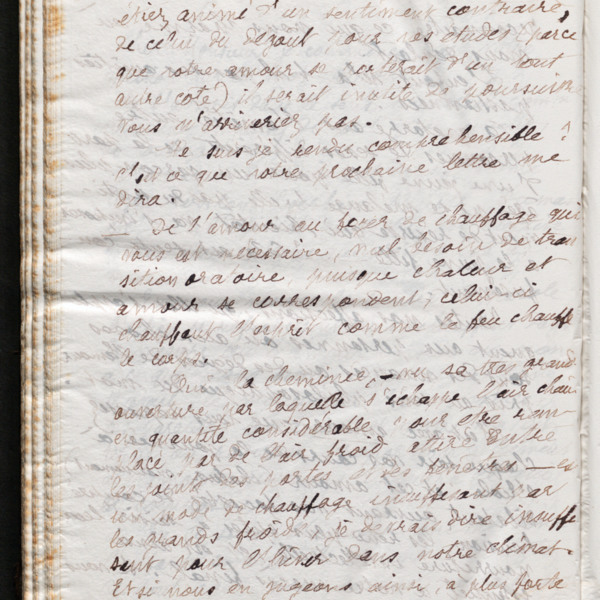 étiez animé d'un sentiment contraire,
de celui du dégoût pour vos études (parce
que votre amour se porterait d'un tout
autre côté) il serait inutile de poursuivre
vous n'arriveriez pas.
Me suis-je rendu compréhensible ?
C'est ce que votre prochaine lettre me
dira.
— De l'amour au foyer de chauffage qui
vous est nécessaire, nul besoin de tran
sition oratoire, puisque chaleur et
amour se correspondent, celui ci
chauffant l'esprit comme le feu chauffe
le corps.
la cheminée, — vu sa très grande
ouverture par laquelle s'échappe l'air chau
en quantité considérable pour être rem-
placé par de l'air froid attiré entre
les joints des portes et des fenêtres — est
un mode de chauffage insuffisant par
les grands froids, je devrais dire insuffi
sant pour l'hiver dans notre climat.
Et si nous en jugeons ainsi, a plus forte